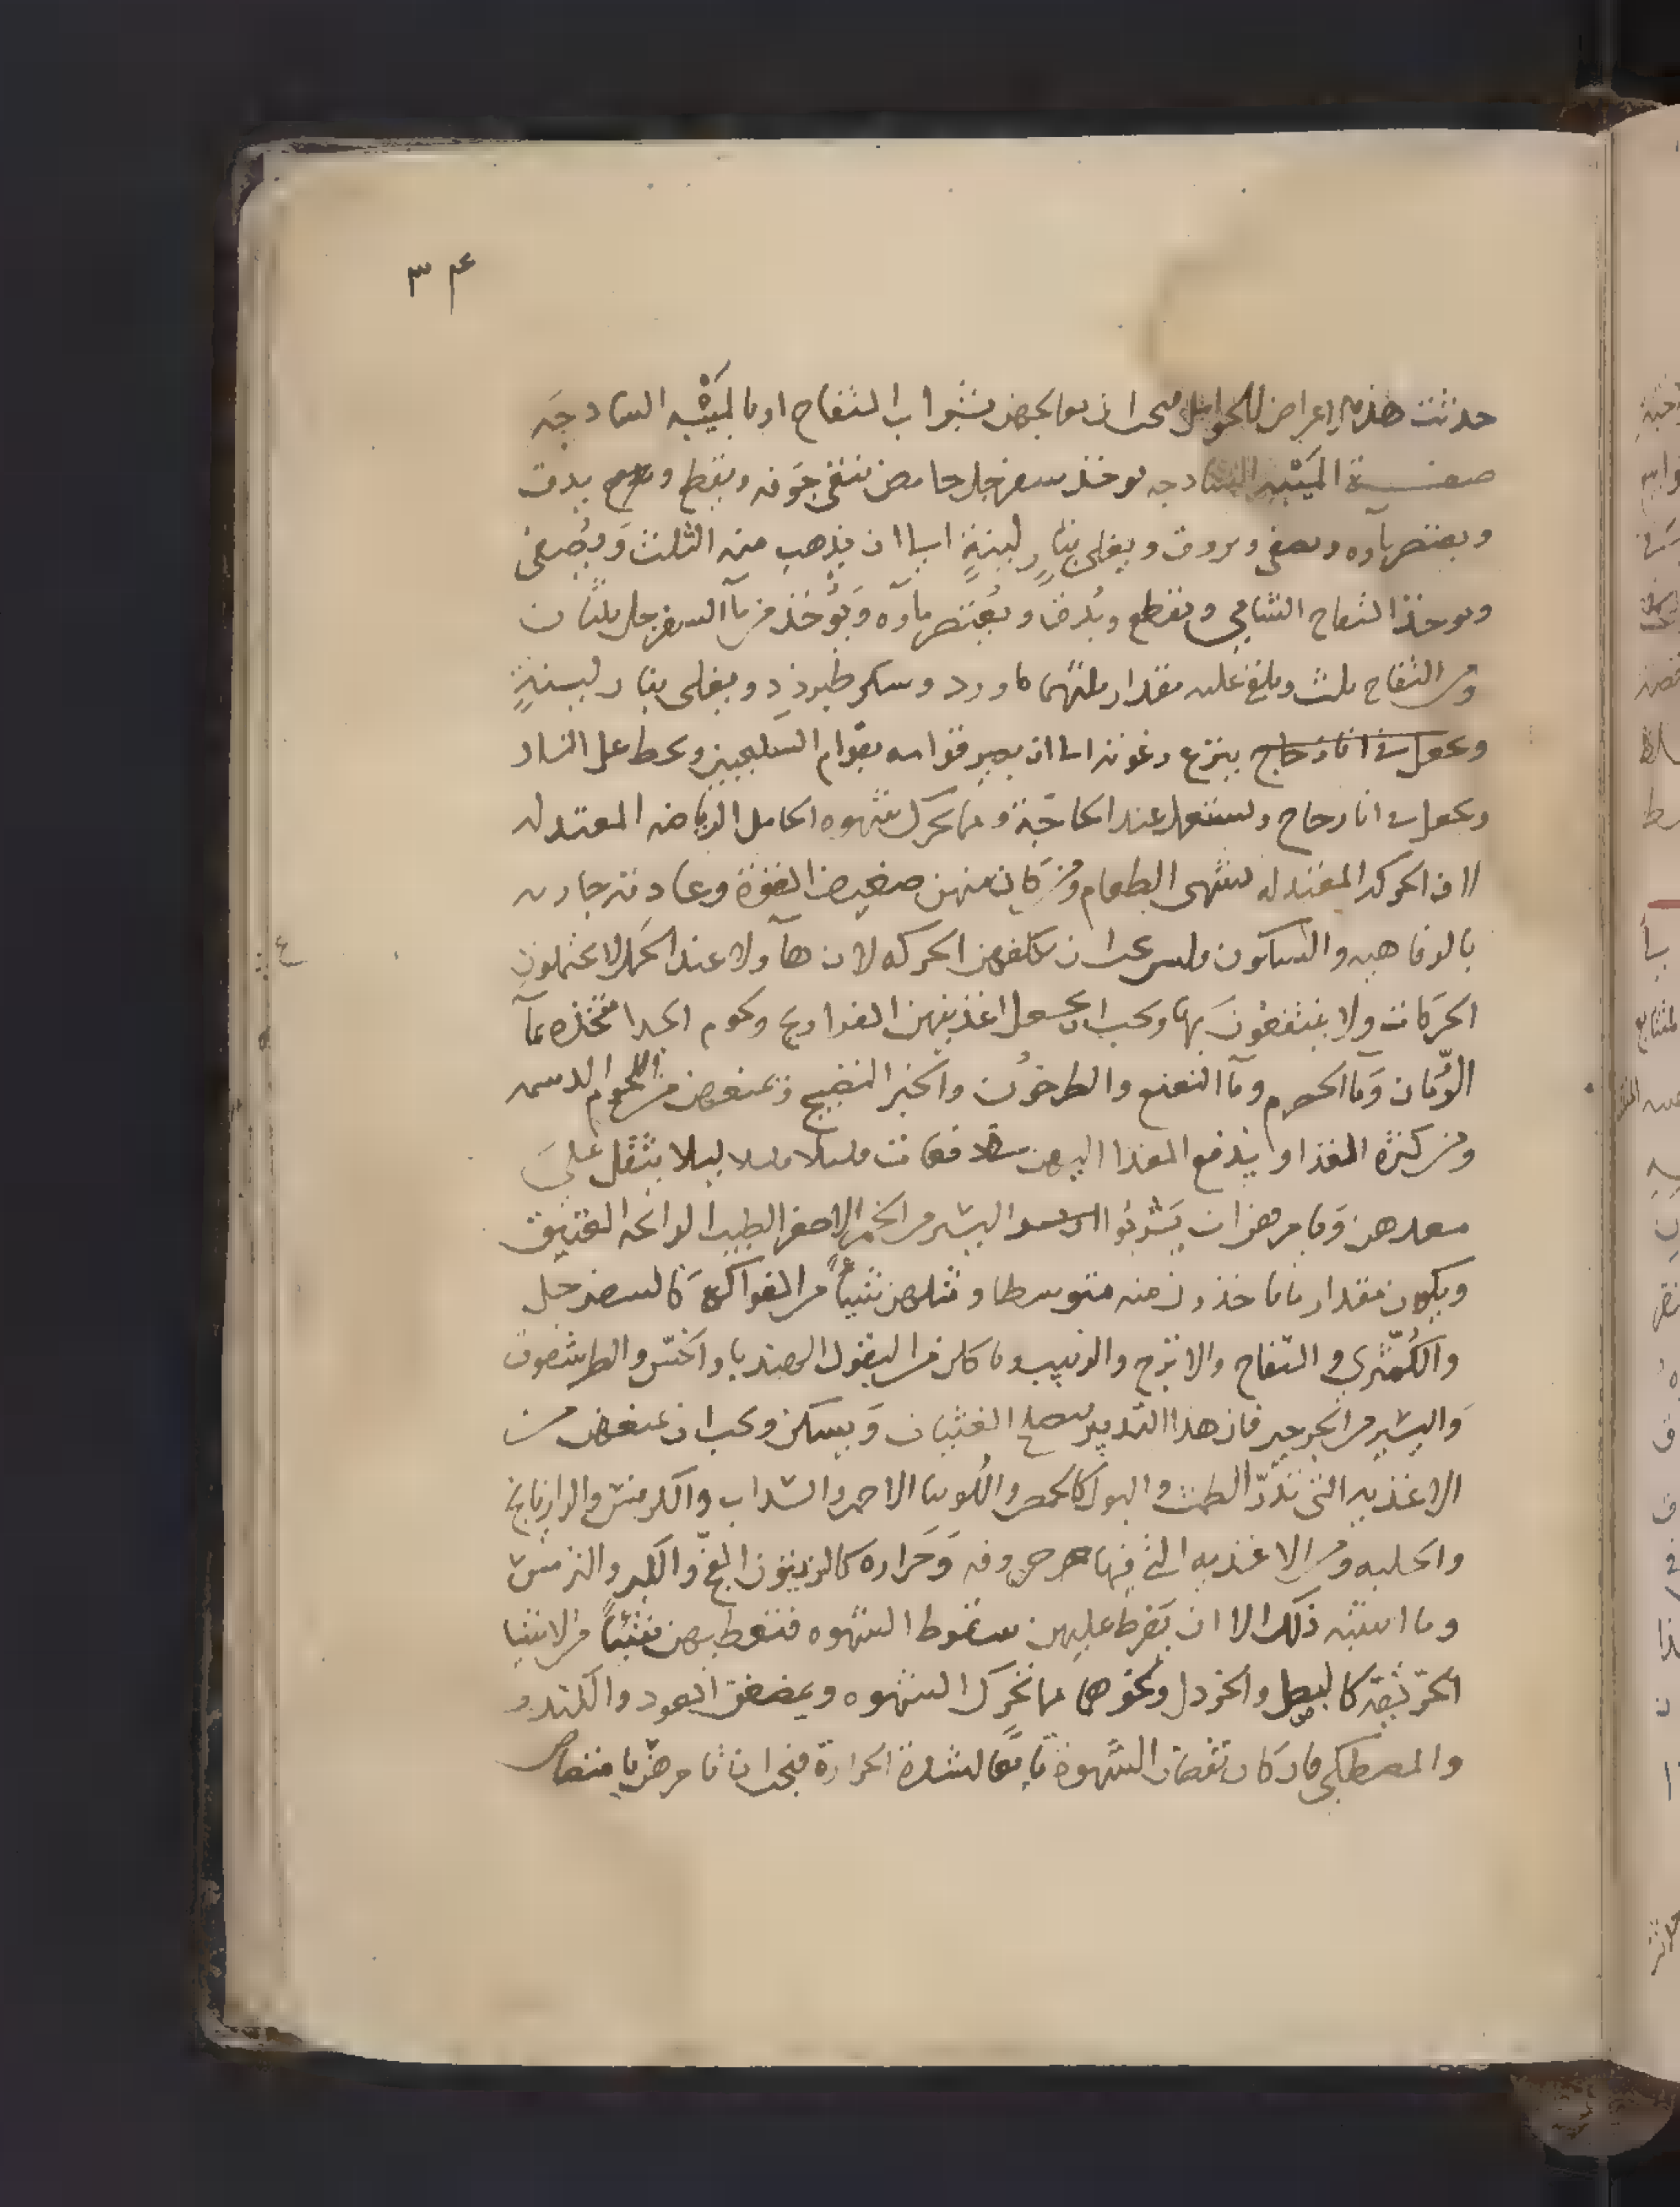 حدثت هذه الاعراض للحوامل فيجب ان تعالجهن بشراب التفاح او بالميبه الساذجه
صفة الميبه الساذجه يوخذ سفرجل حامض ينقى جوفه ويقطع ويدق
ويعتصر ماوه ويصفى ويروق ويغلى بنار لينة الى ان يذهب منه الثلث ويصفى
ويوخذ التفاح الشامي ويقطع ويدق ويعتصر ماوه ويؤخذ من ماء السفرجل ثلثان
ومن التفاح ثلث ويلقى عليه مقدار ثلثهما ماورد وسكر طبرزد ويغلى بنار لينة
ويجعل في انا زجاج ينزع رغوته الى ان يصير قوامه بقوام السكنجبين ويحط عن النار
ويجعل في انا زجاج ويستعمل عند الحاجة ومما يحرك شهوه الحامل الرياضه المعتدله
لان الحركه المعتدله تشهى الطعام ومن كان منهن صغير من القوة وعادته جاريه
بالرفاهيه والسكون فليس يجب ان تكلفهن الحركه لان هاولا عند الحمل لا يحتملون
الحركات ولا ينتفعون بها ويجب ان يجعل اغذيتهن الفراريج ولحوم الجدا متخذه بمآ
الرمان ومآ الحصرم ومآ النعنع والطرخون والخبز النضيج وتمنعهن من اللحوم الدسمه
ومن كثرة الغذا ويدفع الغذا اليهن دفعات قليلا قليلا ليلا يثقل على
معدهن وتامرهن ان يشربوا اليسير من الخمر الاصفر الطيب الرائحه العتيق
ويكون مقدار ما ياخذن منه متوسطا وتنقلهن شيئاً من الفواكه كالسفرجل
والكمثرى والتفاح والاترج والزبيب وياكلن من البقول الهندبا والخس والطرشقون
واليسير من الجرجير فان هذا التدبير يصلح الغثيان ويسكن ويجب ان تمنعهن من
الاغذيه التي تدر الطمث والبول كالحمص واللوبيا الاحمر والسداب والكرفس والرازيانج
والحلبه ومن الاغذيه التي فيها حروفه وحراره كالزيتون الفج والكبر والترمس
وما اشبه ذلك الا ان يفرط عليهن سقوط الشهوه فتعطيهن شيئاً من الاشيا
الحريفة كالبصل والخردل ونحوهما مما تحرك الشهوه ويمضغن العود والكندر
والمصطكى فان كان نقصان الشهوة تابعا لشدة الحرارة فيجب ان تامرهن بامتصاص